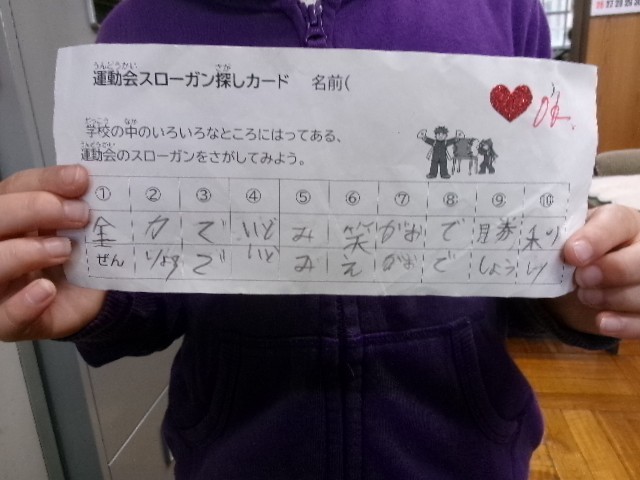 運動会スローガン探しカード 名前(
学校の中のいろいろなところにはってある、
運動会のスローガンをさがしてみよう。
① ② ③ ④ ⑤ ⑥ ⑦ ⑧ ⑨ ⑩
全 力 で いど み 笑 がお で 勝 利
ぜん りょく で いど み え がお で しょう り